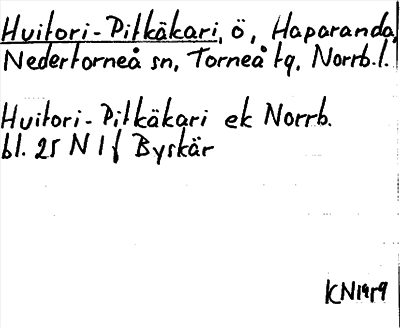 Huitori-Pitkäkari, ö, Haparanda,
Nedertorneå sn, Torneå tg, Norrb.l.
Huitori-Pitkäkari ek Norrb.
bl. 25 N 1 f Byskär
KN1959